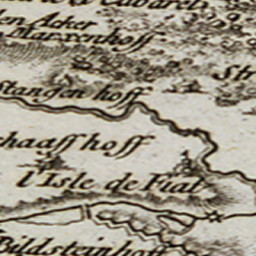 en Acker
Marxenhoff
Str
Stangen hoff
chaaff hoff
l'Isle de Fiat
Bildsteinhoff